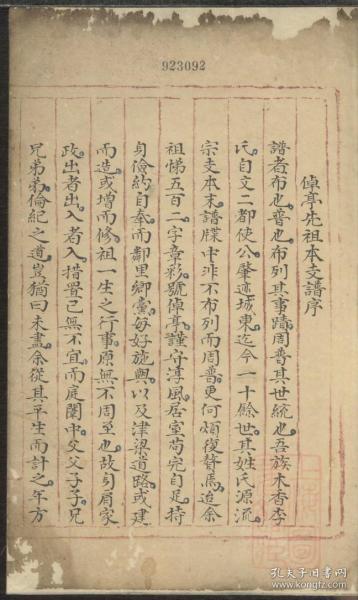 923092
倬亭先祖本支譜序
譜者布也普也布列其事蹟周普其世統也吾族木香李
氏自文二都使公肇迹城東迄今一十餘世其姓氏源流
宗支本末譜牒中非不布列而周普更何煩復贅焉迨余
祖悌五百二字章彩號倬亭謹守淳風居室苟完自足持
身儉約自奉而鄰里鄉黨每好施與以及津梁道路或建
而造或增而修祖一生之行事原無不周至也故引肩家
政出者出入者入措置已無不宜而庭闈中父父子子兄
兄弟弟倫紀之道豈猶曰未盡余從其平生而計之年方
孔夫子旧书网